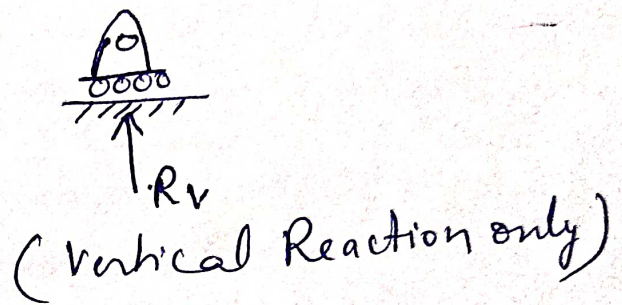 Rv
(Vertical Reaction only)